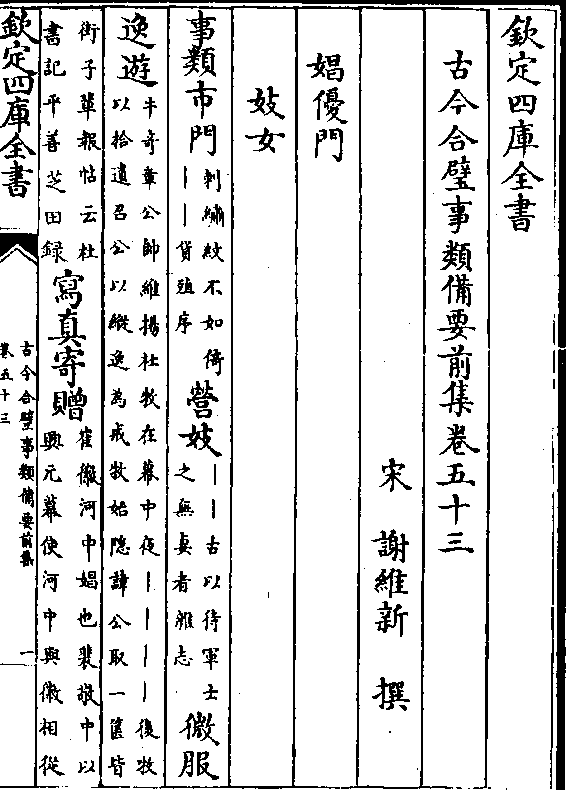 欽定四庫全書
古今合璧事類備要前集卷五十三
宋 謝維新 撰
娼優門
妓女
事類市門刺繡紋不如倚||貨殖序營妓||古以待軍士之無妻者雜志微服
逸遊牛奇章公帥維揚杜牧在幕中夜||||後牧以拾遺召公以縱逸為戒牧始隐諱公取一篋皆
街子輩報帖云杜書記平善芝田録寫真寄贈崔徽河中娼也裴敬中以興元幕使河中與徽相從
欽定四庫全書
古今合璧事類備要前集
卷五十三
一